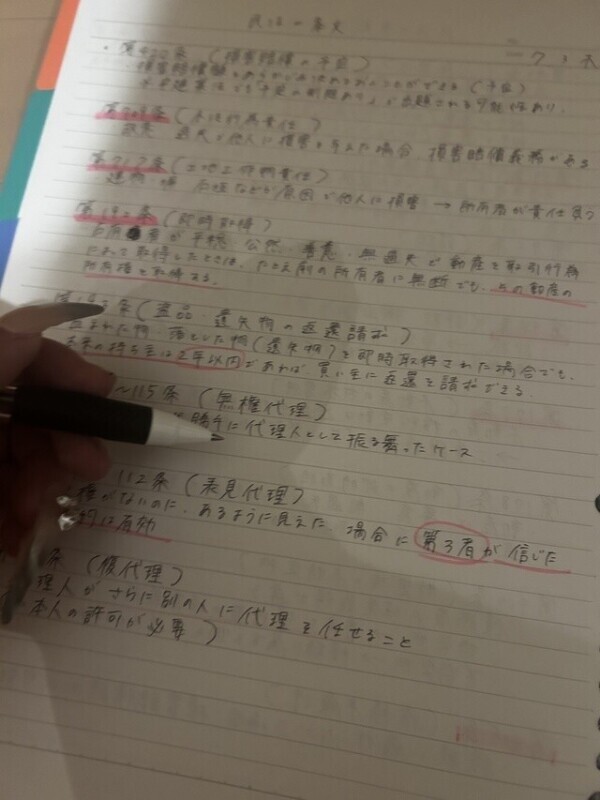 民法の条文
・第420条 (損害賠償の予定)
損害賠償額をあらかじめ決めておくことができる (予定)
(不法行為責任)
故意・過失で他人に損害を与えた場合、損害賠償義務がある
第717条 (土地工作物責任)
建物・塀・石垣などが原因で他人に損害 → 所有者が責任負う
第192条 (即時取得)
占有者が平穏・公然・善意・無過失で動産を取引行為
によって取得したときは、たとえ前の所有者に無断でも、その動産の
所有権を取得する。
第193条 (盗品・遺失物の返還請求)
盗まれた物・落とした物(遺失物)を即時取得された場合でも、
本来の持ち主は2年以内であれば買い主に返還を請求できる。
~115条 (無権代理)
勝手に代理人として振る舞ったケース
112条 (表見代理)
権がないのに、あるように見えた場合に第3者が信じた
有効
条 (復代理)
理人がさらに別の人に代理を任せること
本人の許可が必要)